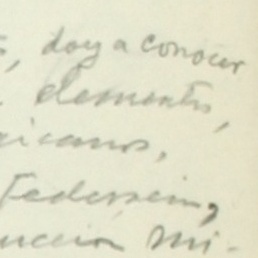 , doy a conocer
elementos,
ricanos,
Federación,
ucción Mi-